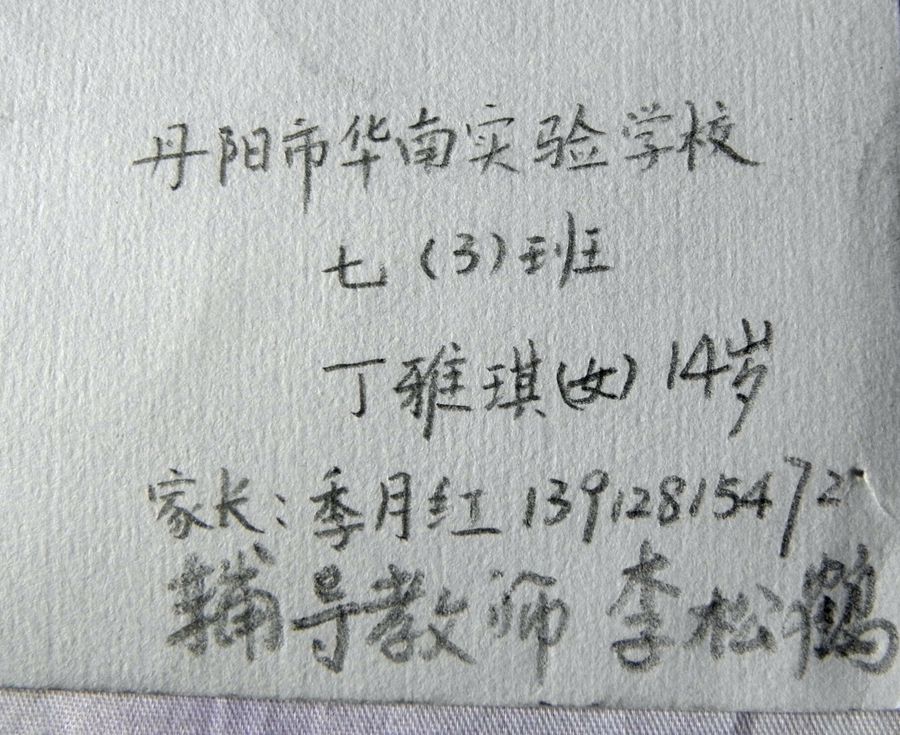 丹阳市华南实验学校
七（3）班
丁雅琪（女）14岁
家长：季月红 13912815472
辅导教师 李松鹤